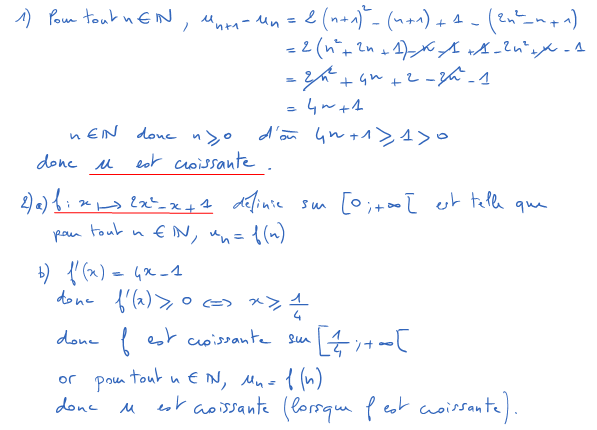 1) Pour tout n ∈ ℕ, uₙ₊₁ - uₙ = 2(n+1)² - (n+1) + 1 - (2n² - n + 1)
= 2(n² + 2n + 1) - n - 1 + 1 - 2n² + n - 1
= 2n² + 4n + 2 - 2n² - 1
= 4n + 1
n ∈ ℕ donc n ⩾ 0 d'où 4n + 1 ⩾ 1 > 0
donc u est croissante.
2) a) f : x ↦ 2x² - x + 1 définie sur [0 ; +∞[ est telle que
pour tout n ∈ ℕ, uₙ = f(n)
b) f'(x) = 4x - 1
donc f'(x) ⩾ 0 ⟺ x ⩾ 1/4
donc f est croissante sur [1/4 ; +∞[
or pour tout n ∈ ℕ, uₙ = f(n)
donc u est croissante (lorsque f est croissante).